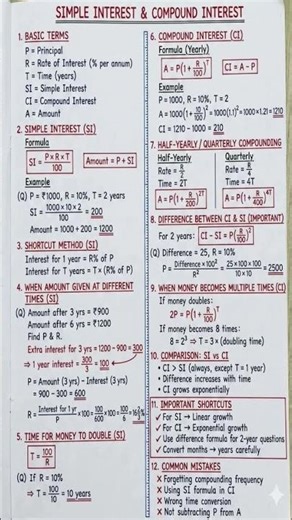 SIMPLE INTEREST & COMPOUND INTEREST
1. BASIC TERMS
P = Principal
R = Rate of Interest (% per annum)
T = Time (years)
SI = Simple Interest
CI = Compound Interest
A = Amount
2. SIMPLE INTEREST (SI)
Formula
SI = P×R×T/100   Amount = P + SI
Example
(Q) P = ₹1000, R = 10%, T = 2 years
SI = 1000×10×2/100 = 200
Amount = 1000 + 200 = 1200
3. SHORTCUT METHOD (SI)
Interest for 1 year = R% of P
Interest for T years = T × (R% of P)
4. WHEN AMOUNT GIVEN AT DIFFERENT
TIMES (SI)
(Q) Amount after 3 yrs = ₹900
Amount after 6 yrs = ₹1200
Find P & R.
Extra interest for 3 yrs = 1200 - 900 = 300
⇒ 1 year interest = 300/3 = 100
P = Amount (3 yrs) - Interest (3 yrs)
= 900 - 300 = 600
R = Interest for 1 yr/P × 100 = 100/600 × 100 = 100/6 = 16
5. TIME FOR MONEY TO DOUBLE (SI)
T = 100/R
(Q) If R = 10%
⇒ T = 100/10 = 10 years
6. COMPOUND INTEREST (CI)
Formula (Yearly)
A = P(1 + R/100)^T   CI = A - P
Example
P = 1000, R = 10%, T = 2
A = 1000(1 + 10/100)² = 1000(1.1)² = 1000×1.21 = 1210
CI = 1210 - 1000 = 210
7. HALF-YEARLY / QUARTERLY COMPOUNDING
Half-Yearly   Quarterly
Rate = R/2   Rate = R/4
Time = 2T   Time = 4T
A = P(1 + R/200)^2T   A = P(1 + R/400)^4T
8. DIFFERENCE BETWEEN CI & SI (IMPORTANT)
For 2 years: CI - SI = P(R/100)²
(Q) Difference = 25, R = 10%
P = Difference × 100²/R² = 25×100×100/10×10 = 2500
9. WHEN MONEY BECOMES MULTIPLE TIMES (CI)
If money doubles:
2P = P(1 + R/100)^T
If money becomes 8 times:
8 = 2³ ⇒ T = 3 × (doubling time)
10. COMPARISON: SI vs CI
• CI > SI (always, except T = 1 year)
• Difference increases with time
• CI grows exponentially
11. IMPORTANT SHORTCUTS
✓ For SI → Linear growth
✓ For CI → Exponential growth
✓ Use difference formula for 2-year questions
✓ Convert months → years carefully
12. COMMON MISTAKES
× Forgetting compounding frequency
× Using SI formula in CI
× Wrong time conversion
× Not subtracting P from A